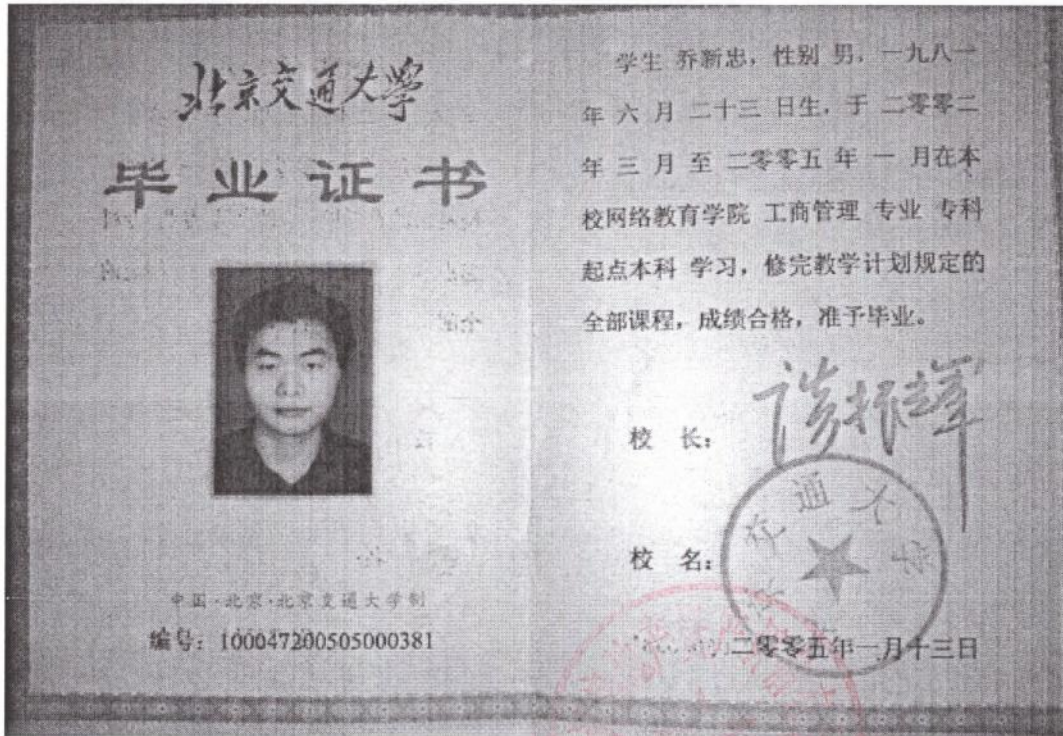 北京交通大学
毕业证书
中国·北京·北京交通大学制
编号：100047200505000381
学生 乔新忠，性别 男，一九八一
年 六 月 二十三 日生，于 二零零二
年 三 月 至 二零零五 年 一 月在本
校网络教育学院 工商管理 专业 专科
起点本科 学习，修完教学计划规定的
全部课程，成绩合格，准予毕业。
校 长：
谈振辉
交通大学
校 名：
二零零五年一月十三日